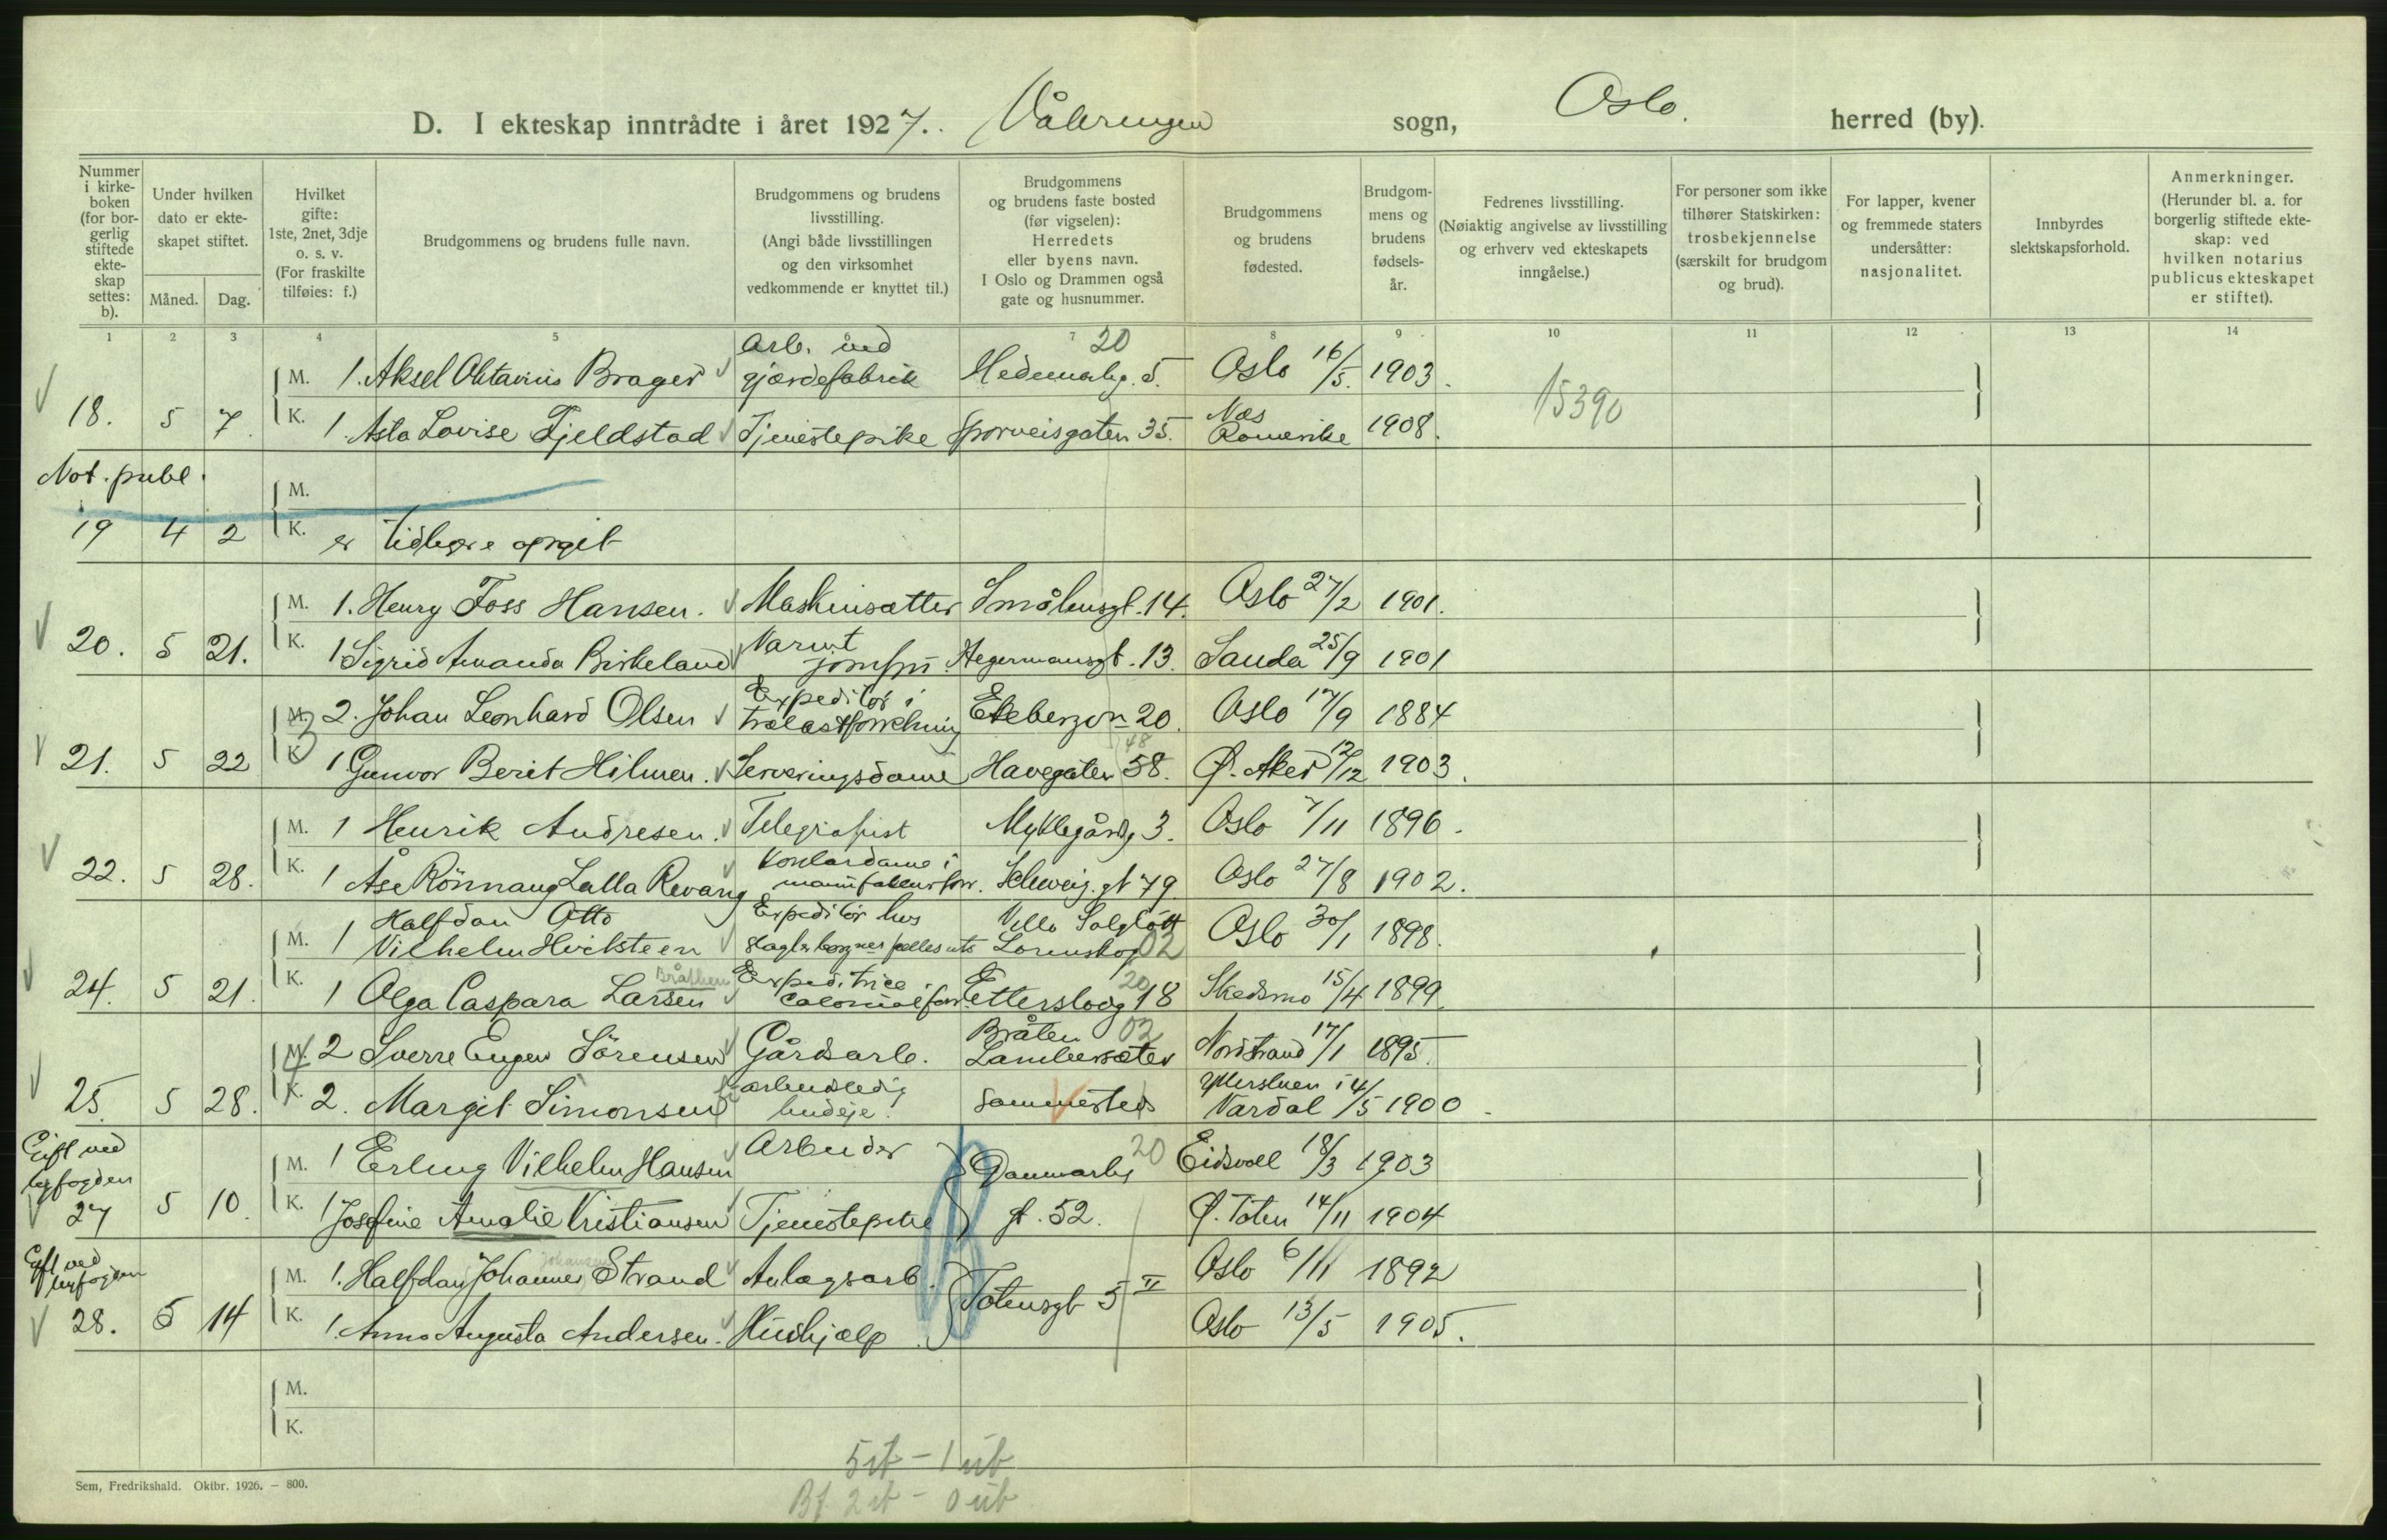 D. I ekteskap inntrådte i året 1927. Vålerengen sogn, Oslo. herred (by).
Nummer i kirke-boken (for bor-gerlig stiftede ekte-skap settes: b).
Under hvilken dato er ekte-skapet stiftet.
Måned. Dag.
Hvilket gifte: 1ste, 2net, 3dje o. s. v. (For fraskilte tilføies: f.)
Brudgommens og brudens fulle navn.
Brudgommens og brudens livsstilling. (Angi både livsstillingen og den virksomhet vedkommende er knyttet til.)
Brudgommens og brudens faste bosted (før vigselen): Herredets eller byens navn. I Oslo og Drammen også gate og husnummer.
Brudgommens og brudens fødested.
Brudgom-mens og brudens fødsels-år.
Fedrenes livsstilling. (Nøiaktig angivelse av livsstilling og erhverv ved ekteskapets inngåelse.)
For personer som ikke tilhører Statskirken: trosbekjennelse (særskilt for brudgom og brud).
For lapper, kvener og fremmede staters undersåtter: nasjonalitet.
Innbyrdes slektskapsforhold.
Anmerkninger. (Herunder bl. a. for borgerlig stiftede ekte-skap: ved hvilken notarius publicus ekteskapet er stiftet).
1 2 3 4 5 6 7 8 9 10 11 12 13 14
20
Arb. ved
M. 1. Aksel Oktavius Brager gjærdefabrik Hedemarksg. 5. Oslo 16/5. 1903.
15390
18. 5 7. K. 1. Asta Lovise Fjeldstad Tjenestepike Sporveisgaten 35. Nes Romerike 1908.
Not. publ.
M.
19 4 2 K. er tidligere opgit
M. 1. Henry Foss Hansen. Maskinsætter Smålensgt. 14. Oslo 27/2 1901.
20. 5 21. K. 1 Sigrid Amanda Birkeland Varmt jomfru. Hegermansgt. 13. Sauda 25/9 1901
M. 2. Johan Leonhard Olsen Expeditør i trælastforretning Ekebergvn 20. Oslo 17/9 1884
48
21. 5 22 K. 1 Gunvor Berit Hilmen. Serveringsdame Havegaten 58. Ø. Aker 12/12 1903.
M. 1 Henrik Andresen. Telegrafist Myklegårdg 3. Oslo 7/11 1896.
22. 5 28. K. 1 Åse Rönnaug Lalla Revang Kontordame i manufakturforr. Schweig. gt 79 Oslo 27/8 1902.
M. 1 Halfdan Otto Vilhelm Hvitsteen Expeditör hos Slagterborgernes fælles uts Villa Solglött Lorenskog 02 Oslo 30/1 1898.
Bråthen
20
24. 5 21. K. 1 Olga Caspara Larsen Expeditrice i colonialforr. Etterstadg 18 Skedsmo 15/4 1899.
M. 2 Sverre Eugen Sörensen Gårdsarb. Bråten 02 Lambertseter Nordstrand 17/1 1895.
25. 5 28. K. 2. Margit Simonsen arbeidsledig budeie. sammesteds Vardal 14/5 1900.
Gift ved byfogden
M. 1 Erling Vilhelm Hansen Arbeider Danmarks 20 Eidsvoll 18/3 1903
27 5 10. K. 1 Josefine Amalie Kristiansen Tjenestepike gt. 52. Ø. Toten 14/11 1904
Gift ved byfogden
M. 1. Halfdan Johannes Strand Anlægsarb. Totensgt 5 II Oslo 6/11 1892
28. 5 14 K. 1. Anna Augusta Andersen. Hushjælp. Oslo 13/5 1905.
M.
K.
5 it - 1 ub
Bf 2 it - 0 ub
Sem, Fredrikshald. Oktbr. 1926. – 800.